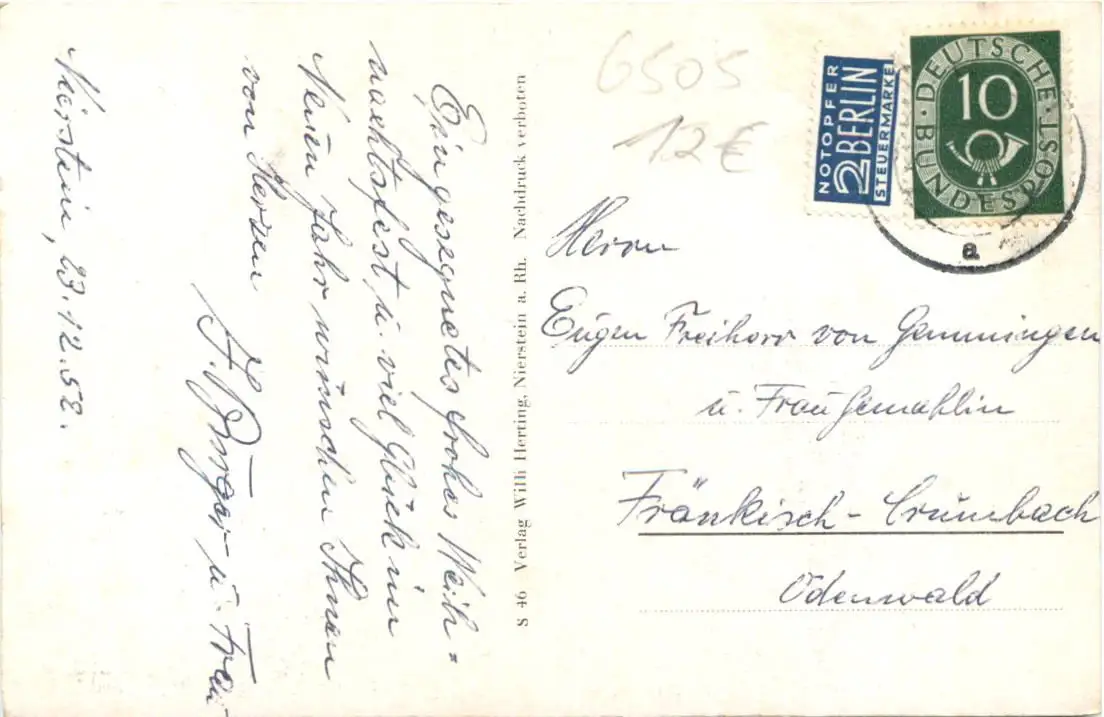 Nierstein, 23.12.52.
Ein gesegnetes frohes Weih=
nachtsfest u. viel Glück im
Neuen Jahr wünschen Ihnen
von Herzen
u. Frau
S 46 Verlag Willi Herring, Nierstein a. Rh. Nachdruck verboten
6505
12€
NOTOPFER
2 BERLIN
STEUERMARKE
DEUTSCHE
BUNDESPOST
10
a
Herrn
Eugen Freiherr von Gemmingen
u. Frau Gemahlin
Fränkisch-Crumbach
Odenwald